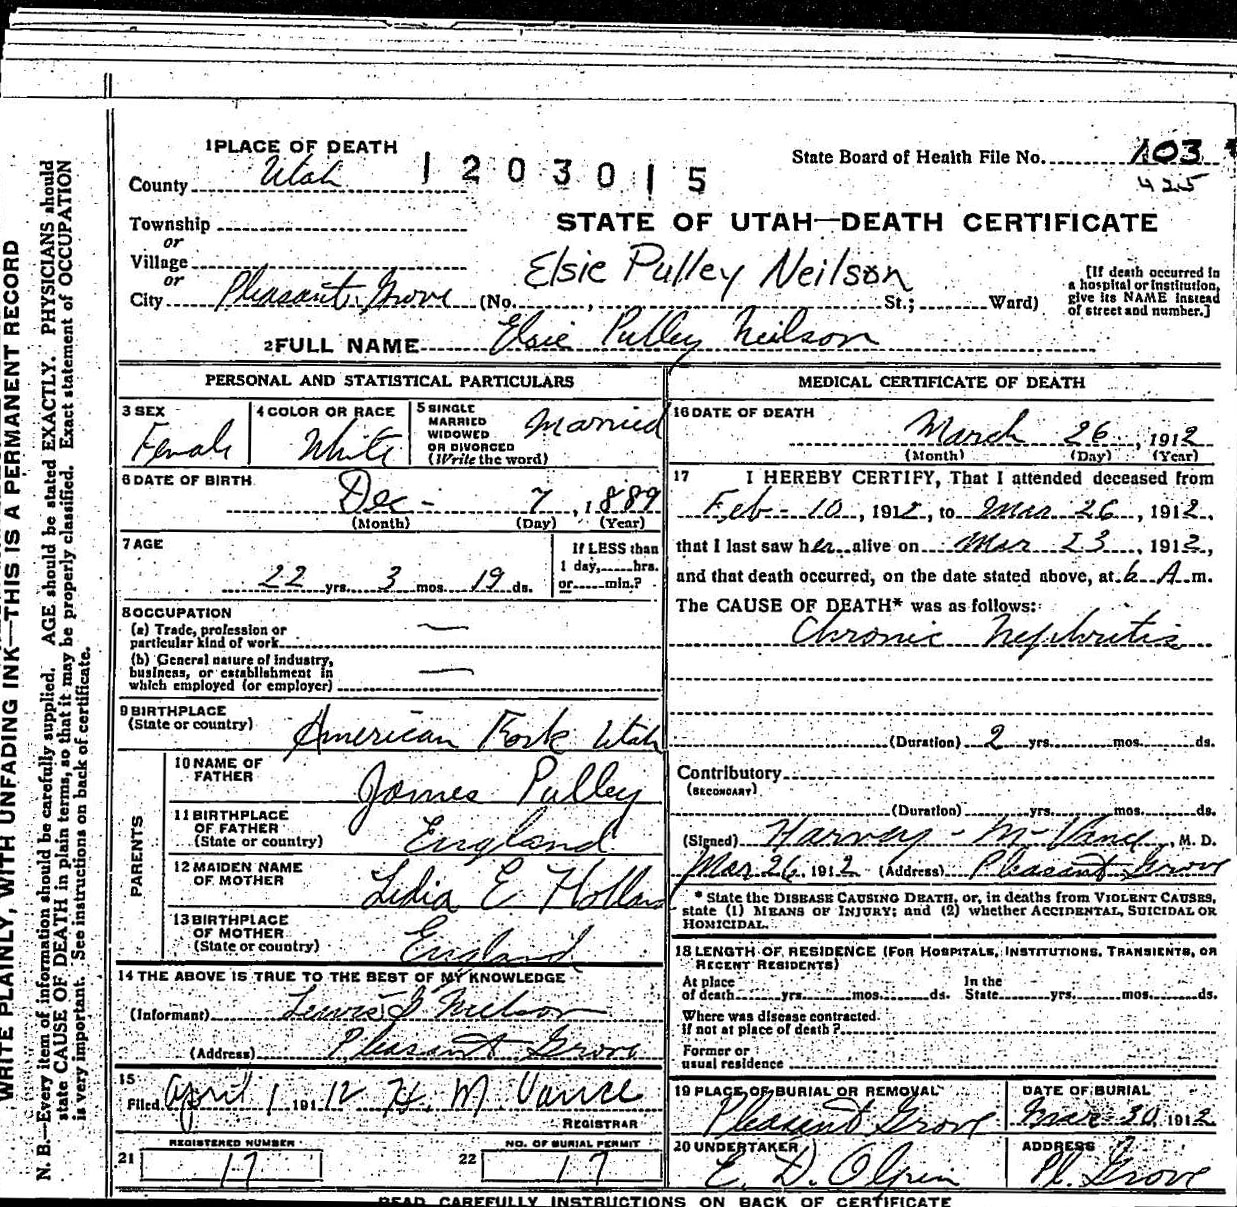 1 PLACE OF DEATH
County Utah
1203015
State Board of Health File No. 103
425
Township
or
Village
or
City Pleasant Grove (No. , St.; Ward)
STATE OF UTAH—DEATH CERTIFICATE
Elsie Pulley Neilson
[If death occurred in
a hospital or institution,
give its NAME instead
of street and number.]
2 FULL NAME Elsie Pulley Neilson
PERSONAL AND STATISTICAL PARTICULARS
3 SEX
Female
4 COLOR OR RACE
White
5 SINGLE
MARRIED
WIDOWED
OR DIVORCED
(Write the word)
Married
6 DATE OF BIRTH
Dec - 7, 1889
(Month) (Day) (Year)
7 AGE
22 yrs. 3 mos. 19 ds.
If LESS than
1 day, hrs.
or min.?
8 OCCUPATION
(a) Trade, profession or
particular kind of work —
(b) General nature of industry,
business, or establishment in
which employed (or employer) —
9 BIRTHPLACE
(State or country) American Fork Utah
PARENTS
10 NAME OF
FATHER James Pulley
11 BIRTHPLACE
OF FATHER
(State or country) England
12 MAIDEN NAME
OF MOTHER Lidia E
13 BIRTHPLACE
OF MOTHER
(State or country) England
14 THE ABOVE IS TRUE TO THE BEST OF MY KNOWLEDGE
(Informant) Lewis Neilson
(Address) Pleasant Grove
15
Filed April 1 191 12 H. M. Vance
REGISTRAR
21 REGISTERED NUMBER
17
22 NO. OF BURIAL PERMIT
17
MEDICAL CERTIFICATE OF DEATH
16 DATE OF DEATH
March 26, 1912
(Month) (Day) (Year)
17 I HEREBY CERTIFY, That I attended deceased from
Feb - 10, 1912, to Mar 26, 1912,
that I last saw her alive on Mar 23, 1912,
and that death occurred, on the date stated above, at 6 A m.
The CAUSE OF DEATH* was as follows:
Chronic Nephritis
(Duration) 2 yrs. mos. ds.
Contributory
(SECONDARY)
(Duration) yrs. mos. ds.
(Signed) Harvey - M - Vance, M. D.
Mar 26, 1912 (Address) Pleasant Grove
* State the DISEASE CAUSING DEATH, or, in deaths from VIOLENT CAUSES,
state (1) MEANS OF INJURY; and (2) whether ACCIDENTAL, SUICIDAL OR
HOMICIDAL.
18 LENGTH OF RESIDENCE (FOR HOSPITALS, INSTITUTIONS, TRANSIENTS, OR
RECENT RESIDENTS)
At place
of death yrs. mos. ds.
In the
State yrs. mos. ds.
Where was disease contracted
if not at place of death?
Former or
usual residence
19 PLACE OF BURIAL OR REMOVAL
Pleasant Grove
DATE OF BURIAL
Mar 30 1912
20 UNDERTAKER
E. D. Olpin
ADDRESS
Pl. Grove
READ CAREFULLY INSTRUCTIONS ON BACK OF CERTIFICATE
WRITE PLAINLY, WITH UNFADING INK—THIS IS A PERMANENT RECORD
N. B.—Every item of information should be carefully supplied. AGE should be stated EXACTLY. PHYSICIANS should
state CAUSE OF DEATH in plain terms, so that it may be properly classified. Exact statement of OCCUPATION
is very important. See instructions on back of certificate.